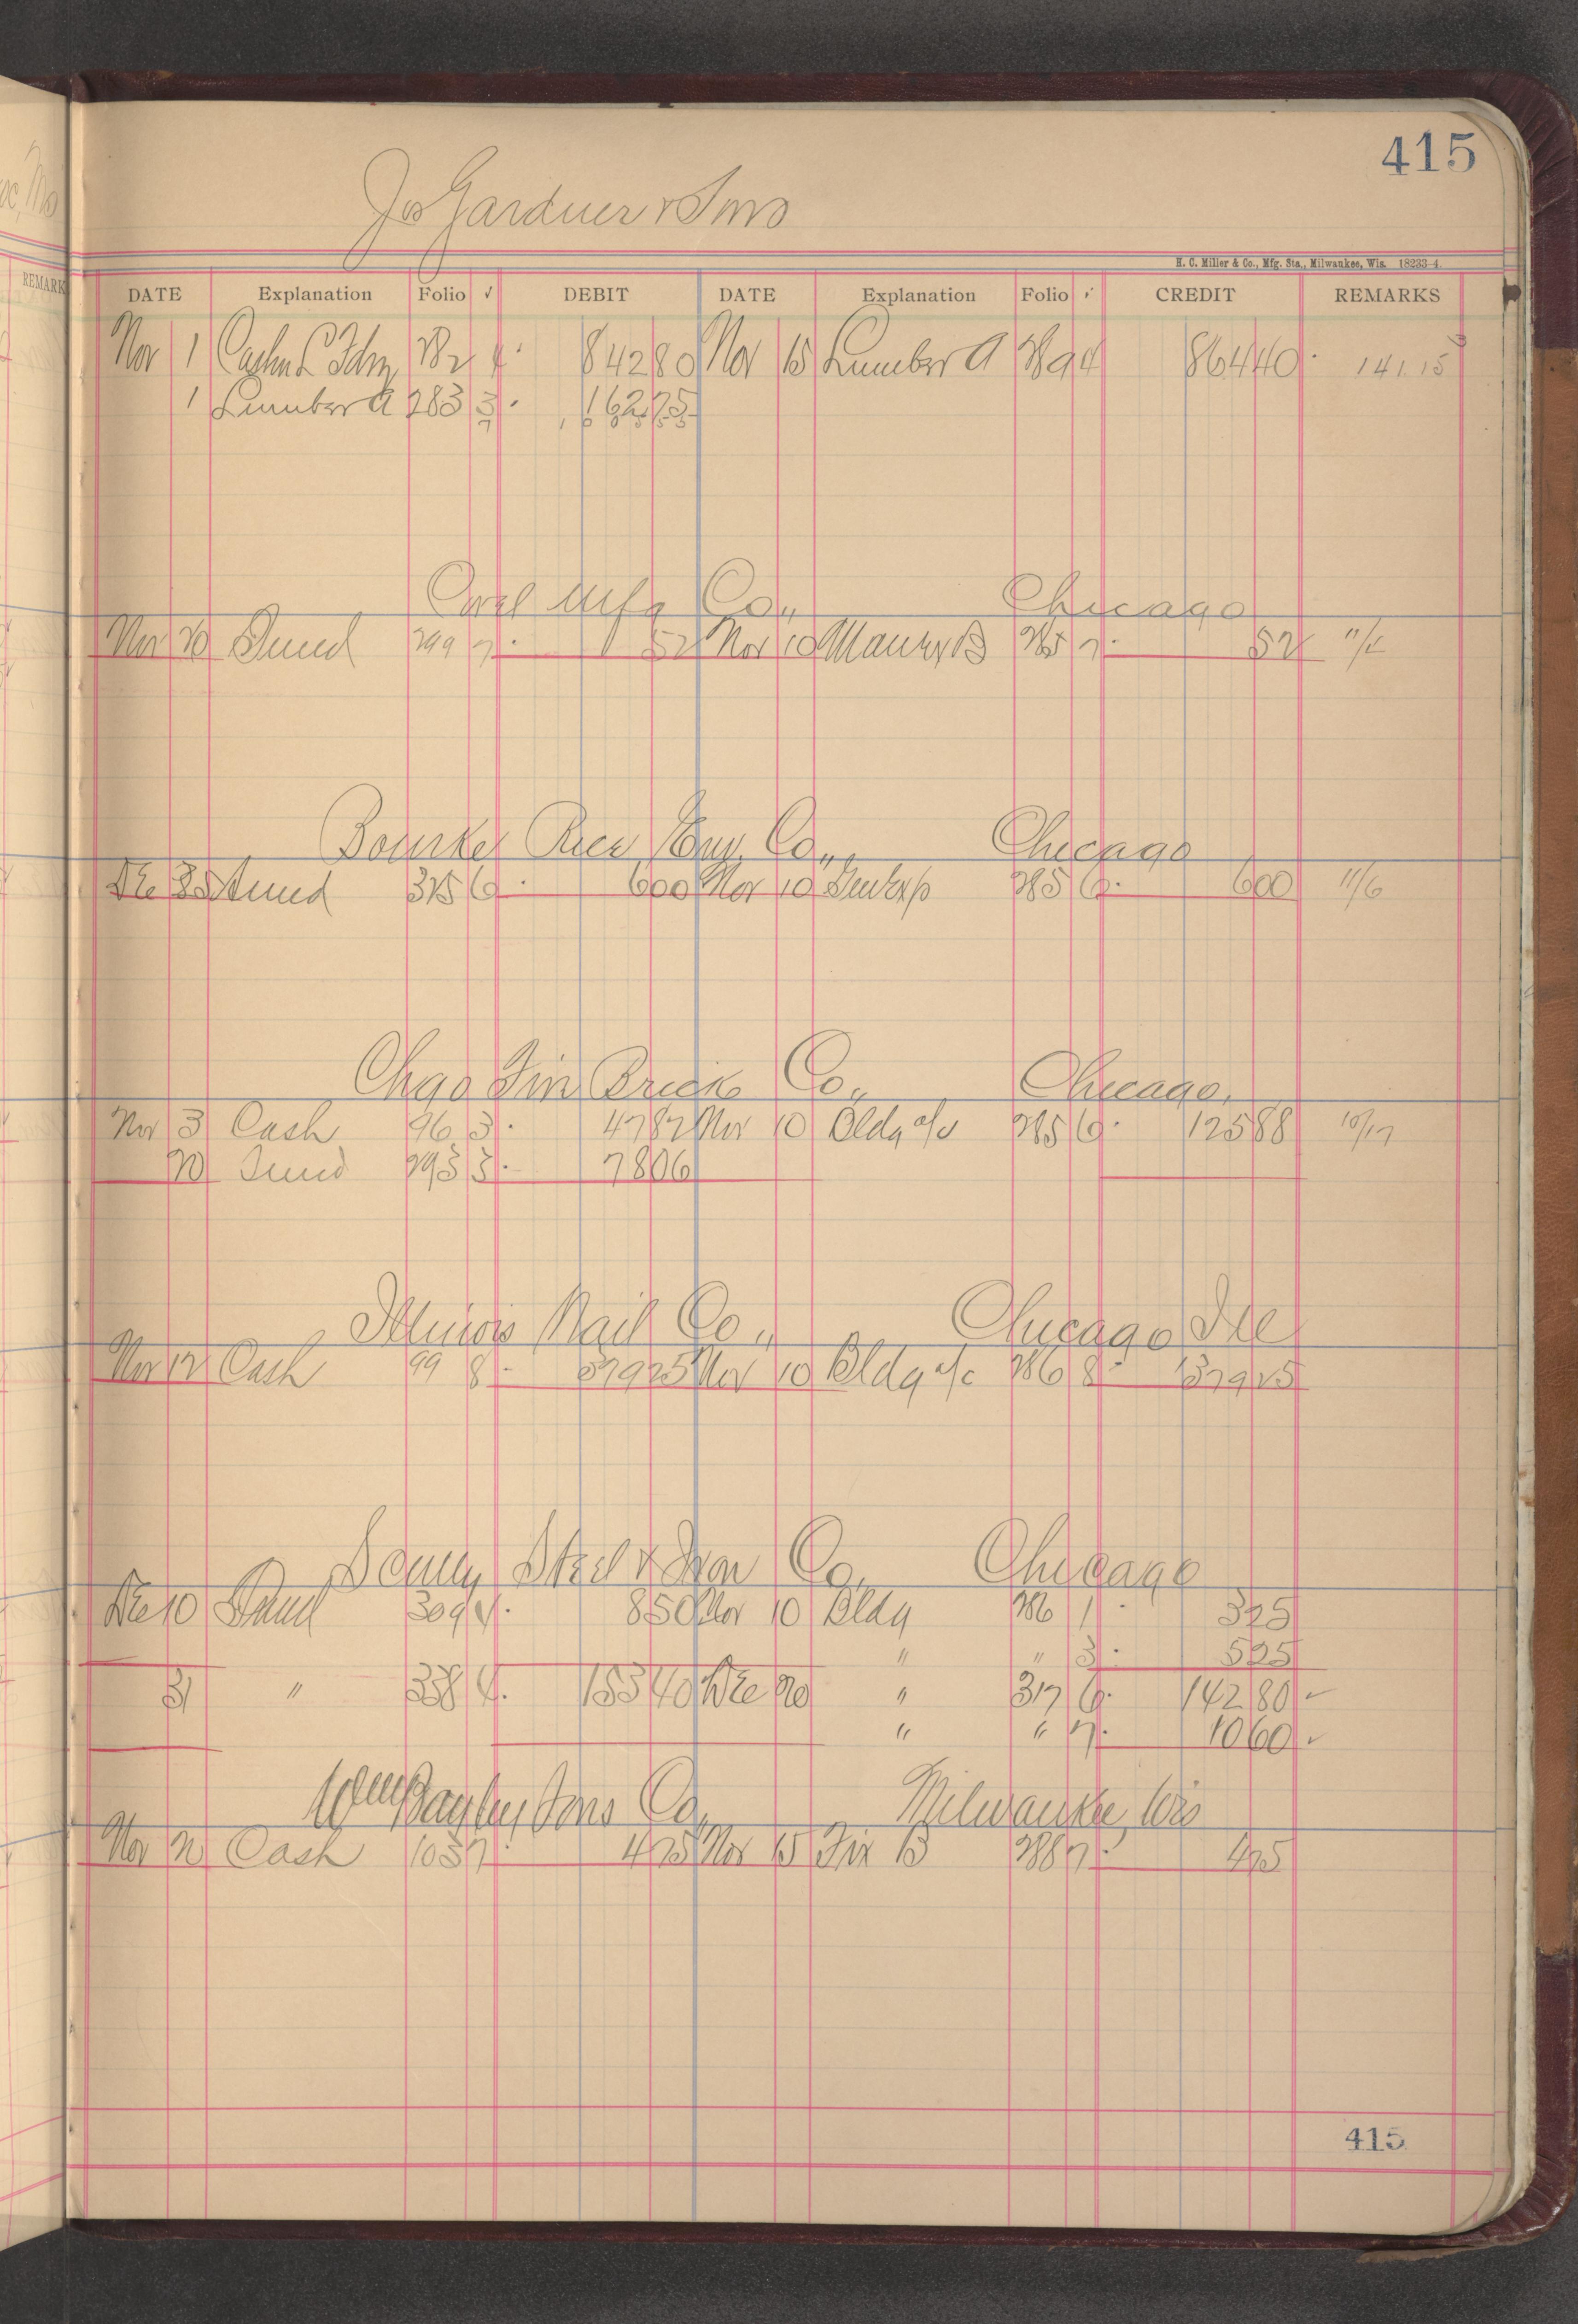 415
Jos Gardner & Sons
H. C. Miller & Co., Mfg. Sta., Milwaukee, Wis. 18233-4.
DATE Explanation Folio ✓ DEBIT DATE Explanation Folio ✓ CREDIT REMARKS
Nov 1 282 4 842 80 Nov 15 Lumber A 289 4 864 40 141.15
1 Lumber A 283 3 162 75
1005 55
Mfg Co., Chicago
Nov 20 Sund 299 7 52 Nov 10 B 285 7 52 11/2
Bourke Rice Env. Co., Chicago
Dec 85 Sund 315 6 6 00 Nov 10 Gen Exp 285 6 6 00 11/6
Chgo Fire Brick Co., Chicago.
Nov 3 Cash 96 3 47 82 Nov 10 Bldg a/c 285 6 125 88 10/17
20 Sund 293 3 78 06
Illinois Nail Co., Chicago Ill
Nov 12 Cash 99 8 379 25 Nov 10 Bldg a/c 286 8 379 25
Scully Steel & Iron Co. Chicago
Dec 10 Sund 309 4 8 50 Nov 10 Bldg 286 1 3 25
" " 3 5 25
31 " 338 4 153 40 Dec 20 " 317 6 142 80
" " 7 10 60
Wm Bayley Sons Co. Milwaukee, Wis
Nov 21 Cash 103 7 4 75 Nov 15 Fix B 288 7 4 75
415